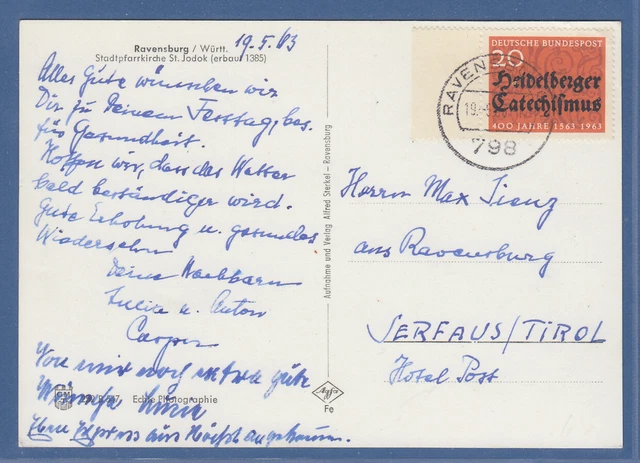 Ravensburg / Württ. 19.5.63
Stadtpfarrkirche St. Jodok (erbaut 1385)
Alles Gute wünschen wir
Dir zu Deinem Festtag, bes.
für Gesundheit.
Hoffen wir, dass das Wetter
bald beständiger wird.
Gute Erholung u. gesundes
Wiedersehn
Deine Nachbarn
u. Anton
Von mir noch extra gute
Echte Photographie
Aufnahme und Verlag Alfred Sterkel – Ravensburg
Agfa
Fe
DEUTSCHE BUNDESPOST
20
Heidelberger
Catechismus
400 JAHRE 1563 1963
RAVEN
798
Herrn Max
aus Ravensburg
SERFAUS/TIROL
Hotel Post